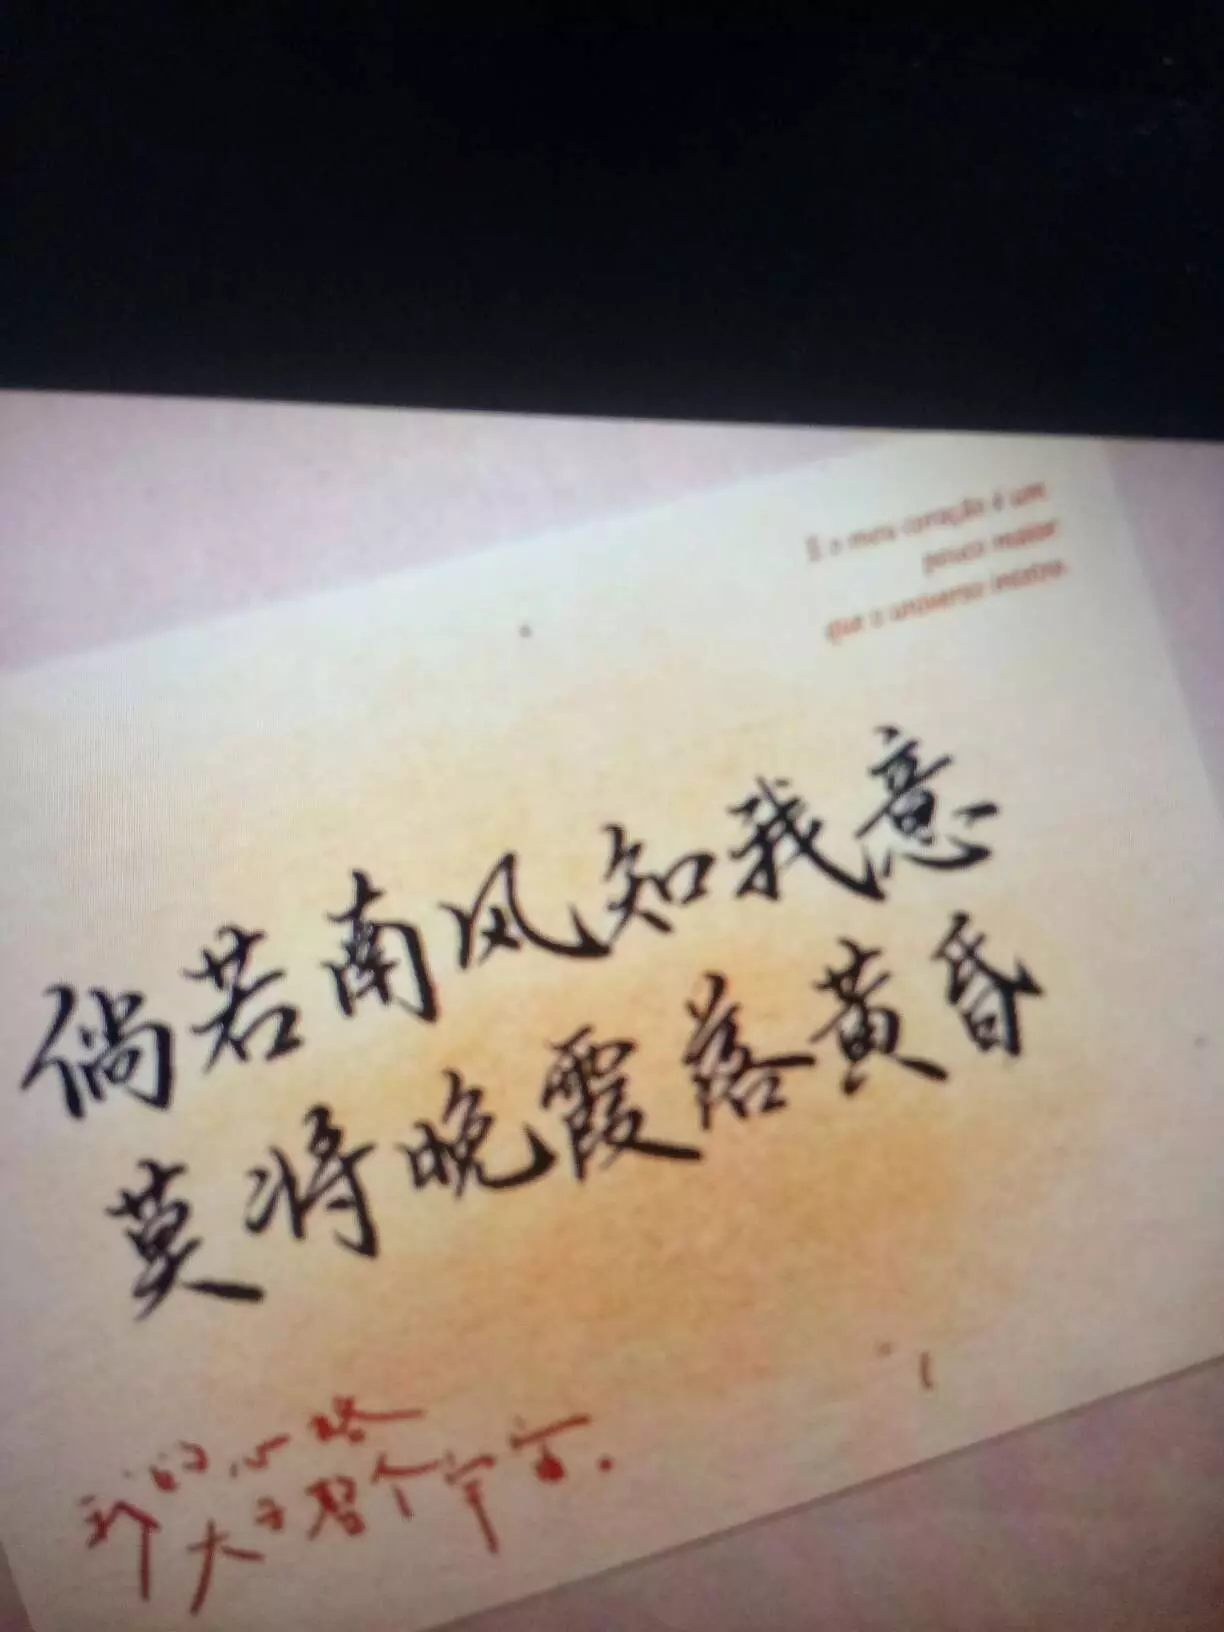 E o meu coração é um
pouco maior
que o universo inteiro.
倘若南风知我意
莫将晚霞落黄昏
我的心略
大于整个宇宙.